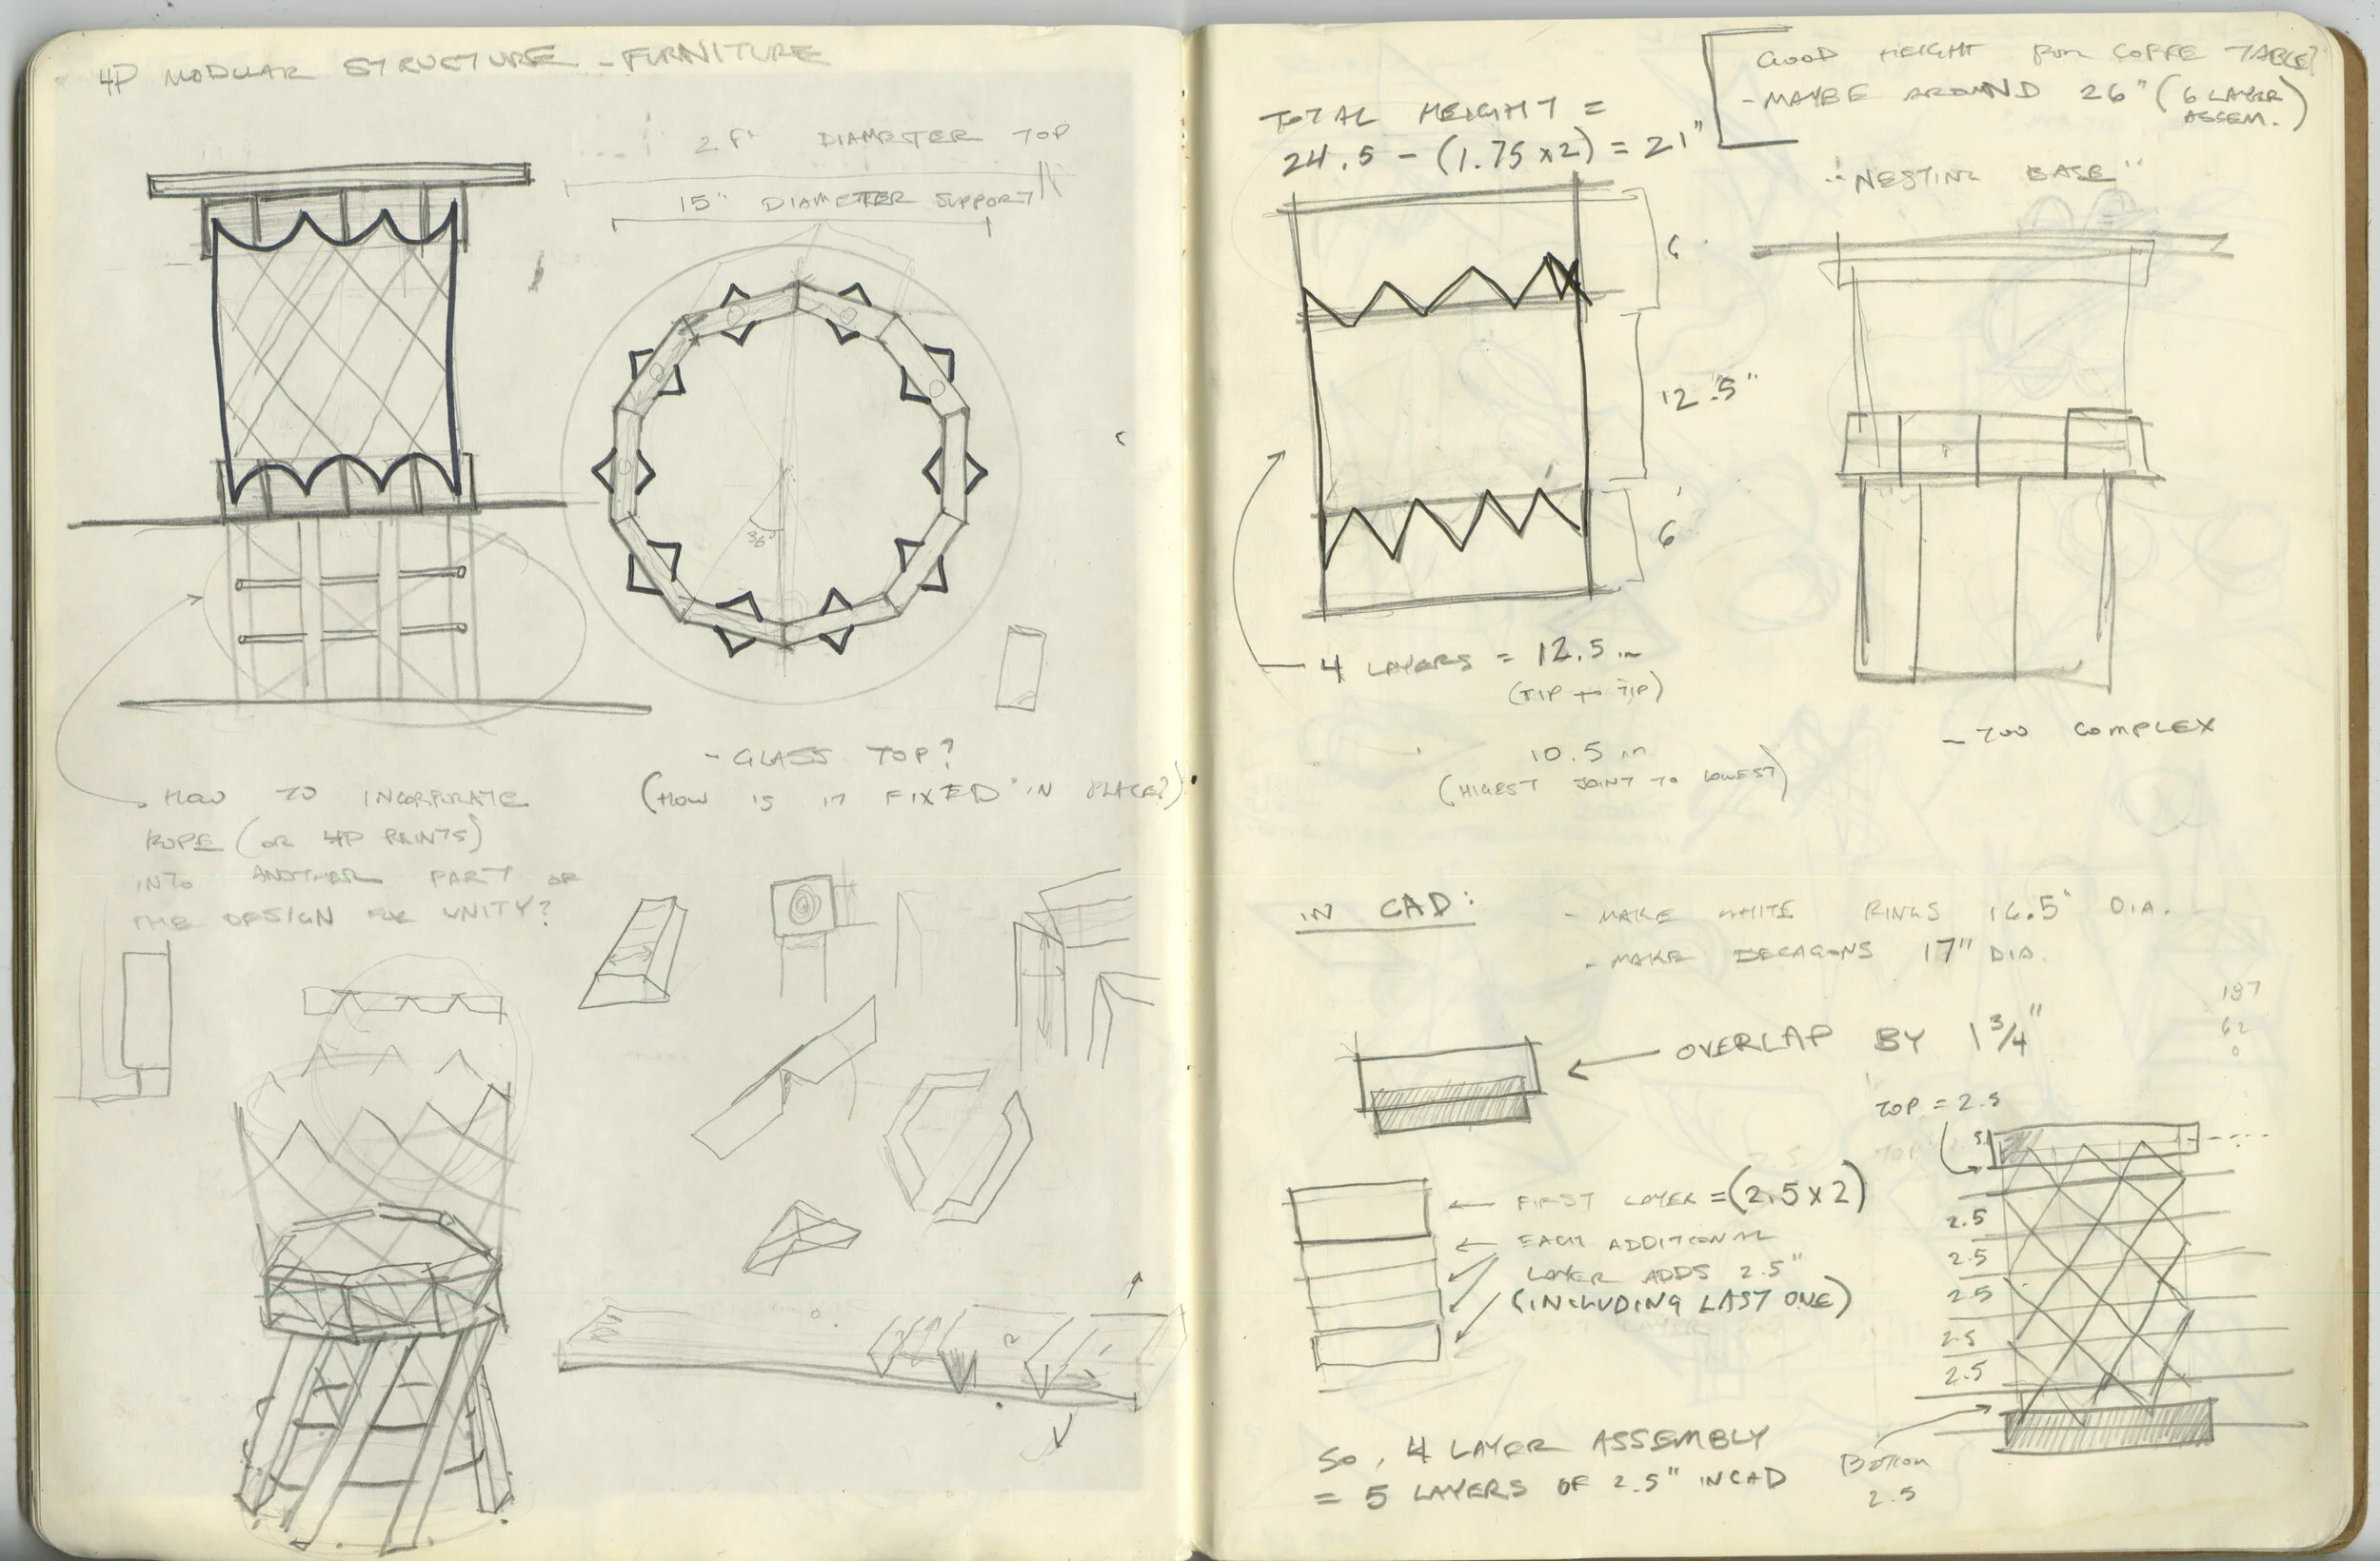 4P MODULAR STRUCTURE - FURNITURE
2 FT DIAMETER TOP
15" DIAMETER SUPPORT
36°
- GLASS TOP?
(HOW IS IT FIXED IN PLACE?)
HOW TO INCORPORATE
ROPE (OR 4P PRINTS)
INTO ANOTHER PART OF
THE DESIGN FOR UNITY?
GOOD HEIGHT FOR COFFE TABLE?
- MAYBE AROUND 26" (6 LAYER
ASSEM.)
TOTAL HEIGHT =
24.5 - (1.75 x 2) = 21"
"NESTING BASE"
6
12.5"
6
4 LAYERS = 12.5 in
(TIP TO TIP)
10.5 in
(HIGEST JOINT TO LOWEST)
- TOO COMPLEX
IN CAD:
- MAKE WHITE RINGS 16.5" DIA.
- MAKE DECAGONS 17" DIA.
187
62
0
OVERLAP BY 1 3/4"
TOP = 2.5
FIRST LAYER = (2.5 x 2)
EACH ADDITIONAL
LAYER ADDS 2.5"
(INCLUDING LAST ONE)
2.5
2.5
2.5
2.5
2.5
BOTTOM
2.5
SO, 4 LAYER ASSEMBLY
= 5 LAYERS OF 2.5" IN CAD